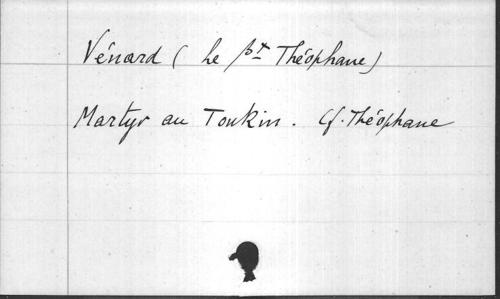 Vénard ( Le bx Théophane)
Martyr au Tonkin. Cf. Théophane